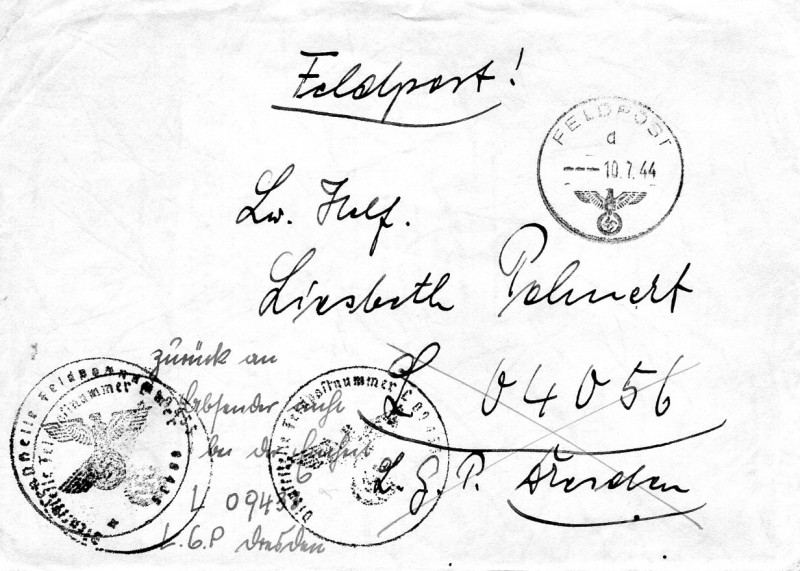 Feldpost!
FELDPOST
d
--- 10.7.44
Lw. Helf.
Liesbeth
L 04056
L.G.P. Dresden
zurück an
Absender nicht
bei der Einheit
L.G.P Dresden
Dienststelle Feldpostnummer
Dienststelle Feldpostnummer